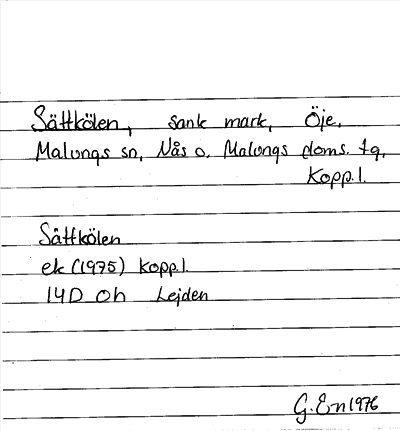 Sättkölen, sank mark, Öje,
Malungs sn, Nås o. Malungs doms. tg,
Kopp.l.
Sättkölen
ek (1975) Kopp.l.
14D 0h Lejden
G. En 1976